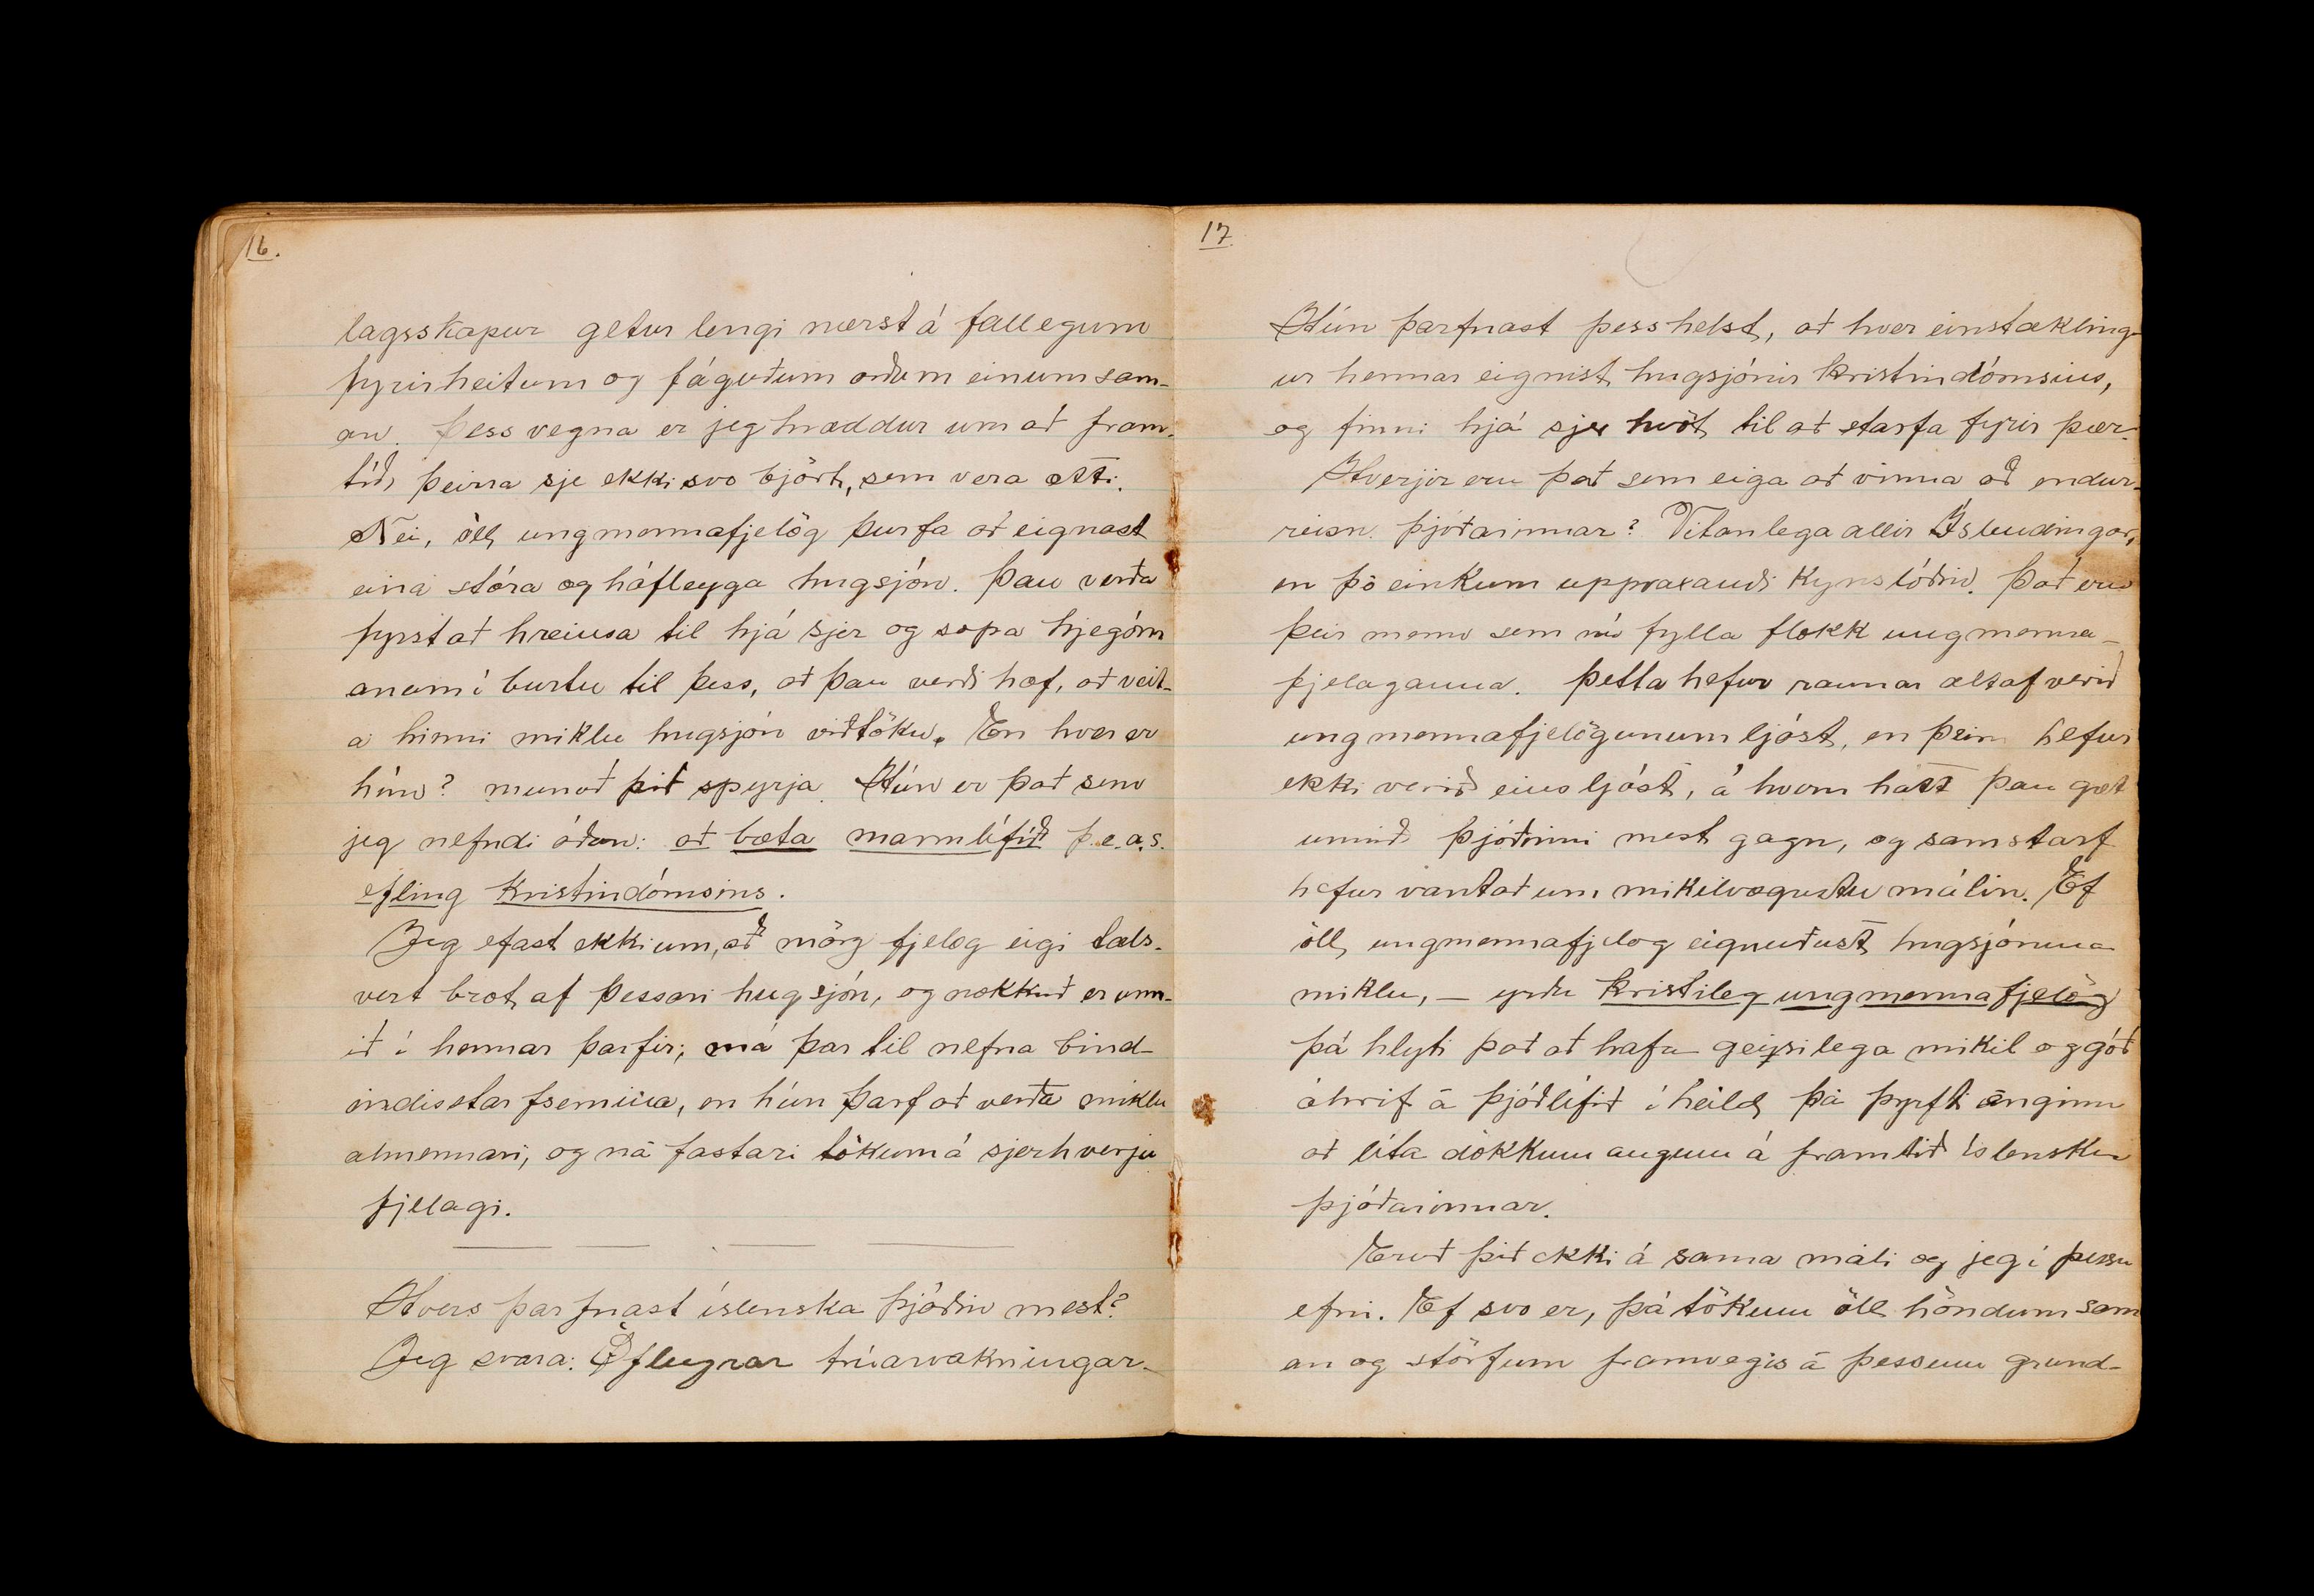 16.
lagsskapur getur lengi nærst á fallegum
fyrirheitum og fáguðum orðum einum sam-
an. Þess vegna er jeg hræddur um að fram-
tíð þeirra sje ekki svo björt, sem vera ætti.
Nei, öll ungmennafjelög þurfa að eignast
eina stóra og háfleyga hugsjón. Þau verða
fyrst að hreinsa til hjá sjer og sópa hjegóm
anum í burtu til þess, að þau verði hæf, að veit-
a hinni miklu hugsjón viðtöku. En hver er
hún? munað þið spyrja. Hún er það sem
jeg nefndi áðan: að bæta mannlífið þ.e.a.s.
efling kristindómsins.
Jeg efast ekki um, að mörg fjelög eigi tals-
vert brot af þessari hugsjón, og nokkuð er unn-
ið í hennar þarfir; má þar til nefna bind-
indisstarfsemina, en hún þarf að verða miklu
almennari, og ná fastari tökum á sjerhverju
fjelagi.
Hvers þarfnast íslenska þjóðin mest?
Jeg svara: Öflugrar trúarvakningar-
17
Hún þarfnast þess helst, að hver einstakling-
ur hennar eignist hugsjónir kristindómsins,
og finni hjá sjer hvöt til að starfa fyrir þær.
Hverjir eru það sem eiga að vinna að endur-
reisn þjóðarinnar? Vitanlega allir Íslendingar,
en þó einkum uppvaxandi kynslóðin. Það eru
þeir menn sem nú fylla flokk ungmenna-
fjelaganna. Þetta hefur raunar altaf verið
ungmennafjelögunum ljóst, en þeim hefur
ekki verið eins ljóst, á hvern hátt þau gæt
unnið þjóðinni mest gagn, og samstarf
hefur vantað um mikilvægustu málin. Ef
öll ungmennafjelog eignuðust hugsjónina
miklu, – yrðu kristileg ungmennafjelög
þá hlyti það að hafa geysilega mikil og góð
áhrif á þjóðlífið í heild, þá þyrfti enginn
að líta dökkum augum á framtíð íslensku
þjóðarinnar.
Eruð þið ekki á sama máli og jeg í þessu
efni. Ef svo er, þá tökum öll höndum sam
an og störfum framvegis á þessum grund-